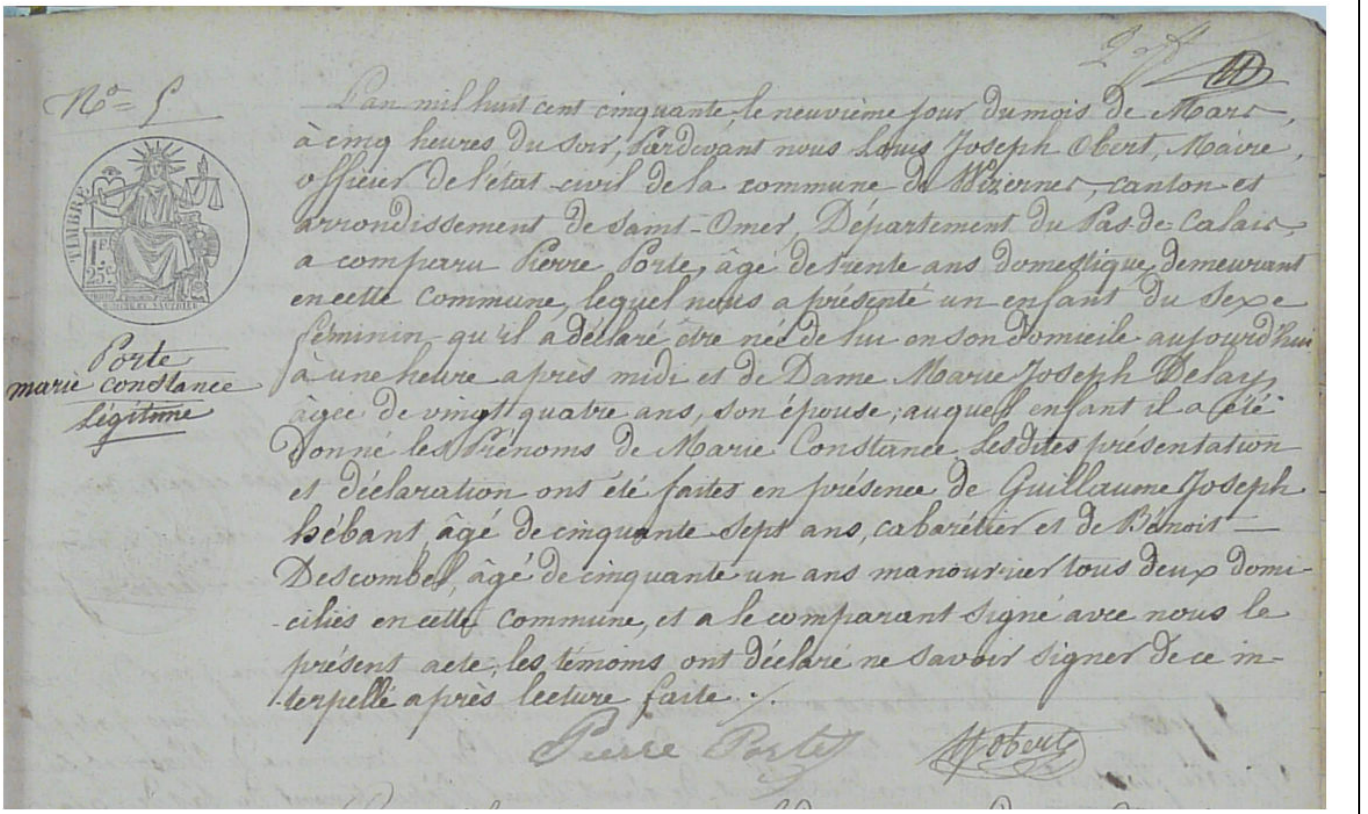 N° = 5
L'an mil huit cent cinquante, le neuvième jour du mois de Mars,
à cinq heures du soir, Pardevant nous Louis Joseph Obert, Maire,
officier de l'état-civil de la commune de Wizernes, canton et
arrondissement de Saint-Omer, Département du Pas-de-Calais,
a comparu Pierre Porte, âgé de trente ans domestique, demeurant
en cette Commune, lequel nous a présenté un enfant du Sexe
féminin qu'il a déclaré être née de lui en son domicile aujourd'hui
à une heure après midi et de Dame Marie Joseph Delay,
âgée de vingt quatre ans, son épouse, auquel enfant il a été
Donné les Prénoms de Marie Constance. Lesdites présentation
et déclaration ont été faites en présence de Guillaume Joseph
hébant, âgé de cinquante sept ans, cabarétier et de Bénoit
Descombel, âgé de cinquante un ans manouvrier tous deux domi-
-ciliés en cette Commune, et a le comparant signé avec nous le
présent acte, les témoins ont déclaré ne savoir signer de ce in-
-terpellé après lecture faite ./.
TIMBRE
1 F.
25 c.
Porte
marie constance
légitime
Pierre Porte
Obert